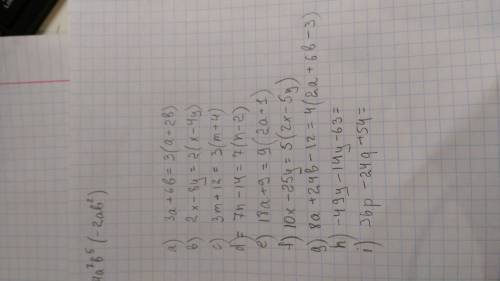 4a⁷b⁵(-2ab²)
a) 3a+6b=3(a+2b)
b) 2x-8y=2(x-4y)
c) 3m+12=3(m+4)
d)= 7n-14=7(n-2)
e) 18a+9=9(2a+1)
f) 10x-25y=5(2x-5y)
g) 8a+24b-12=4(2a+6b-3)
h) -49y-14y-63=
i) 36p-24q+54=